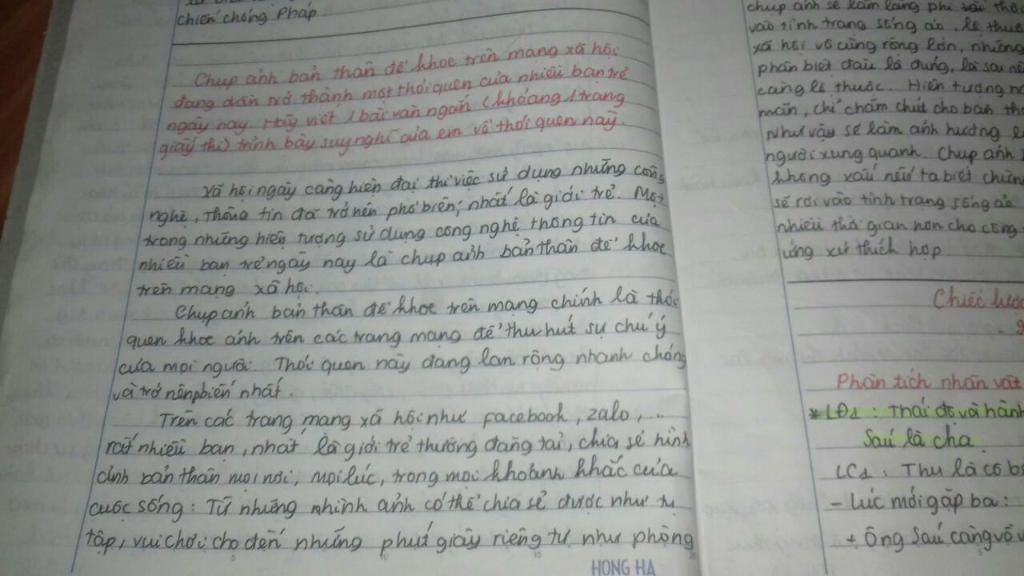 chiến chống Pháp
Chụp ảnh bản thân để khoe trên mạng xã hội
đang dần trở thành một thói quen của nhiều bạn trẻ
ngày nay. Hãy viết 1 bài văn ngắn (khoảng 1 trang
giấy thi) trình bày suy nghĩ của em về thói quen này.
Xã hội ngày càng hiện đại thì việc sử dụng những công
nghệ, thông tin đã trở nên phổ biến, nhất là giới trẻ. Một
trong những hiện tượng sử dụng công nghệ thông tin của
nhiều bạn trẻ ngày nay là chụp ảnh bản thân để khoe
trên mạng xã hội.
Chụp ảnh bản thân để khoe trên mạng chính là thói
quen khoe ảnh trên các trang mạng để thu hút sự chú ý
của mọi người. Thói quen này đang lan rộng nhanh chóng
và trở nên phổ biến nhất.
Trên các trang mạng xã hội như facebook, zalo, ...
rất nhiều bạn, nhất là giới trẻ thường đăng tải, chia sẻ hình
ảnh bản thân mọi nơi, mọi lúc, trong mọi khoảnh khắc của
cuộc sống: Từ những hình ảnh có thể chia sẻ được như tụ
tập, vui chơi cho đến những phút giây riêng tư như phòng
HONG HA
chụp ảnh sẽ làm lãng phí thời
vào tình trạng sống ảo, lệ thuộc
xã hội vô cùng rộng lớn, những
phân biệt đâu là đúng, là sai
càng lệ thuộc. Hiện tượng
mãn, chỉ chăm chút cho bản
Như vậy sẽ làm ảnh hưởng
người xung quanh. Chụp ảnh
không xấu nếu ta biết chừng
sẽ rơi vào tình trạng sống ảo
nhiều thời gian hơn cho công
ứng xử thích hợp
Chiếc lược
Phân tích nhân vật
* LĐ1: Thái độ và hành
Sáu là cha
LC1: Thu là cô bé
- Lúc mới gặp ba:
+ Ông Sáu càng vỗ v